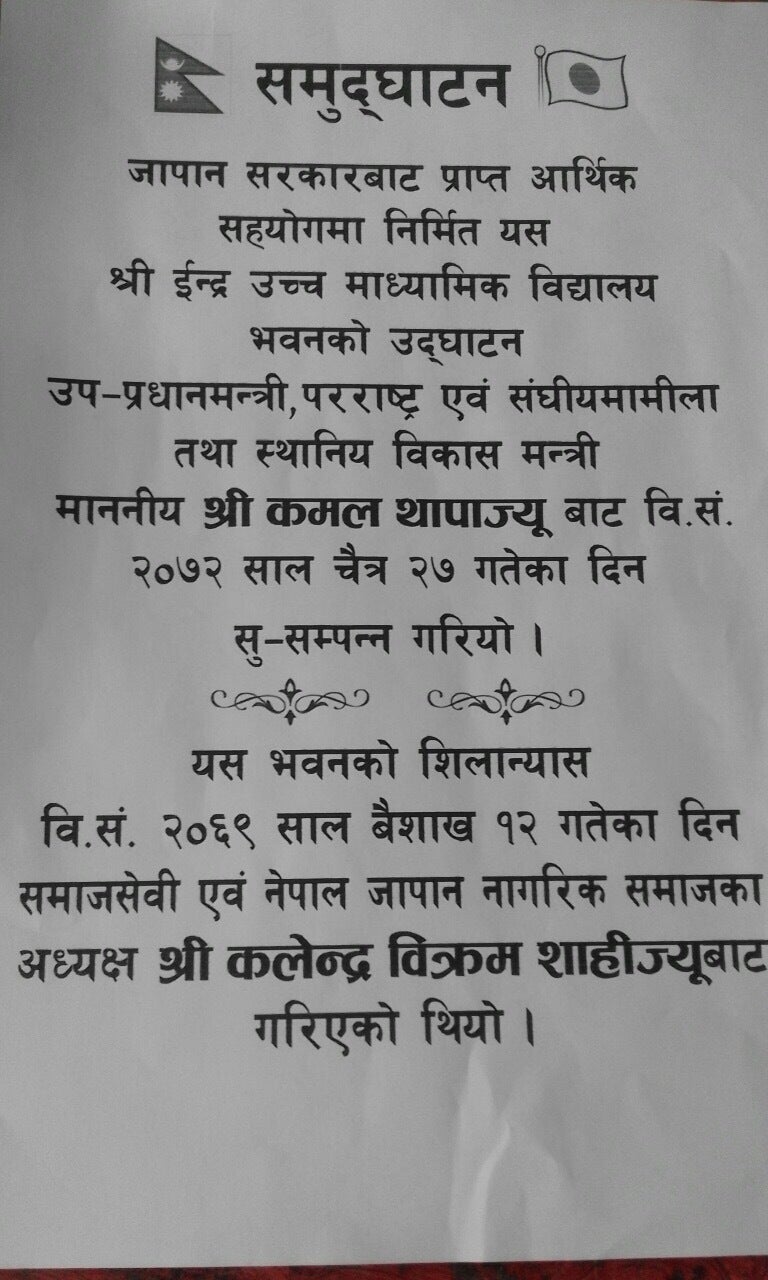 समुद्‌घाटन
जापान सरकारबाट प्राप्त आर्थिक
सहयोगमा निर्मित यस
श्री ईन्द्र उच्च माध्यामिक विद्यालय
भवनको उद्‌घाटन
उप-प्रधानमन्त्री,परराष्ट्र एवं संघीयमामीला
तथा स्थानिय विकास मन्त्री
माननीय श्री कमल थापाज्यू बाट वि.सं.
२०७२ साल चैत्र २७ गतेका दिन
सु-सम्पन्न गरियो ।
यस भवनको शिलान्यास
वि.सं. २०६९ साल बैशाख १२ गतेका दिन
समाजसेवी एवं नेपाल जापान नागरिक समाजका
अध्यक्ष श्री कलेन्द्र विक्रम शाहीज्यूबाट
गरिएको थियो ।